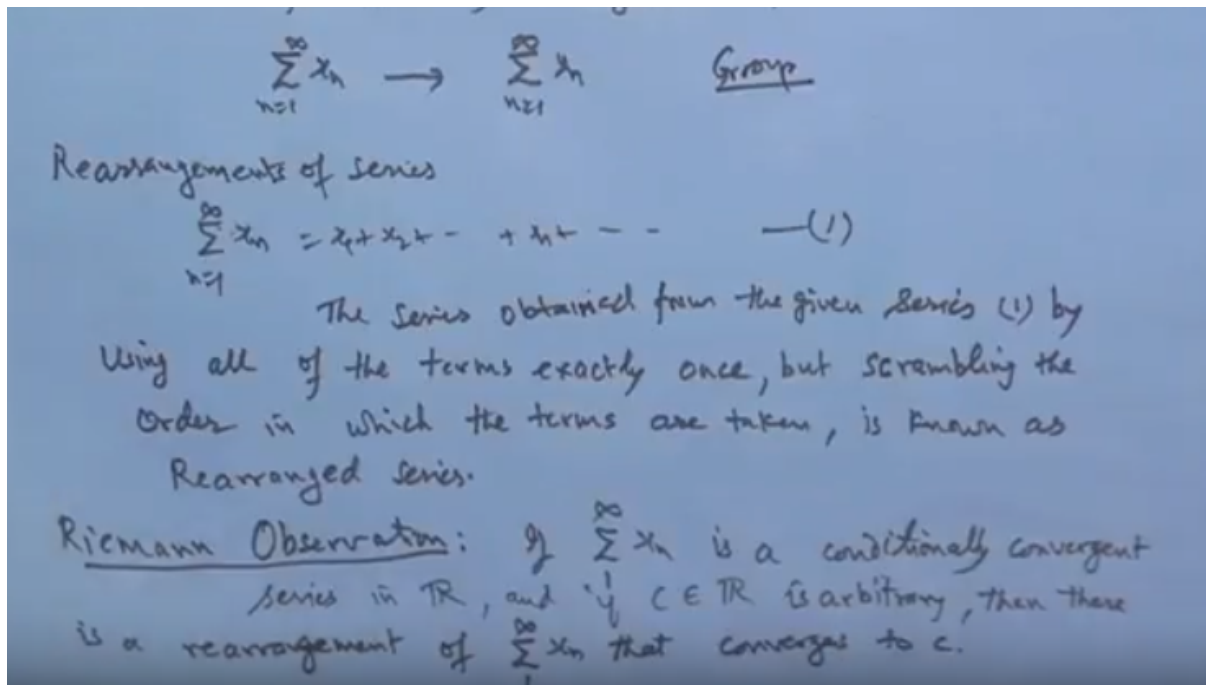 ∞∑n=1 xn → ∞∑n=1 xn Group
Rearrangements of series
∞∑n=1 xn = x1 + x2 + - + xn + - - —(1)
The series obtained from the given series (1) by
Using all of the terms exactly once, but scrambling the
Order in which the terms are taken, is known as
Rearranged series.
Riemann Observation: If ∞∑1 xn is a conditionally convergent
series in ℝ, and if C ∈ ℝ is arbitrary, then there
is a rearrangement of ∞∑1 xn that converges to c.